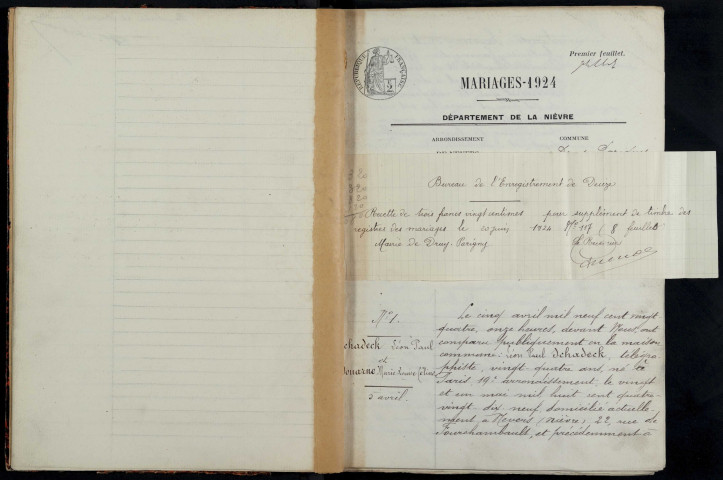 Premier feuillet.
RÉPUBLIQUE FRANÇAISE
MARIAGES-1924
DÉPARTEMENT DE LA NIÈVRE
ARRONDISSEMENT COMMUNE
Bureau de l'Enregistrement de Decize
Recette de trois francs vingt centimes pour supplément de timbre des
registres des mariages le 20 juin 1924 (8 feuillets
Mairie de Druy-Parigny
N° 1.
Schadeck Léon Paul
et
Marie Louise
5 avril.
Le cinq avril mil neuf cent vingt
quatre, onze heures, devant Nous, ont
comparu publiquement en la maison
commune: Léon Paul Schadeck, télégra
phiste, vingt-quatre ans, né à
Paris 19e arrondissement, le vingt
et un mai mil huit cent quatre-
vingt-dix neuf domicilié actuelle
ment à Nevers (Nièvre) 22, rue de
Fourchambault, et précédemment à